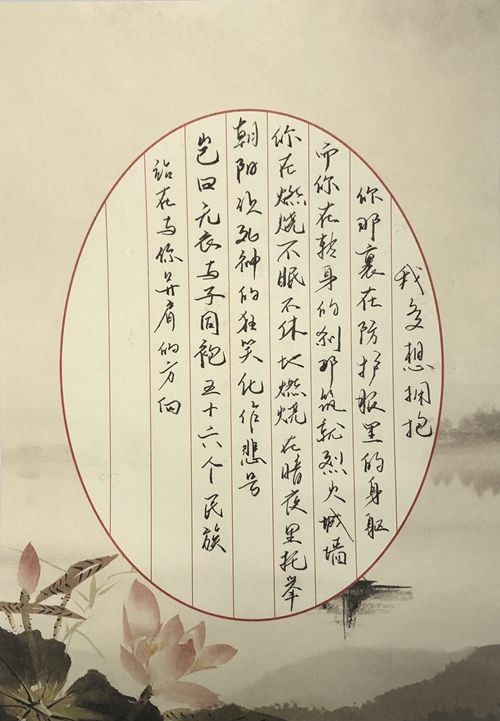 我多想拥抱
你那裹在防护服里的身躯
而你在转身的刹那筑就烈火城墙
你在燃烧不眠不休地燃烧在暗夜里托举
朝阳让死神的狂笑化作悲号
岂曰无衣与子同袍五十六个民族
站在与你并肩的方向